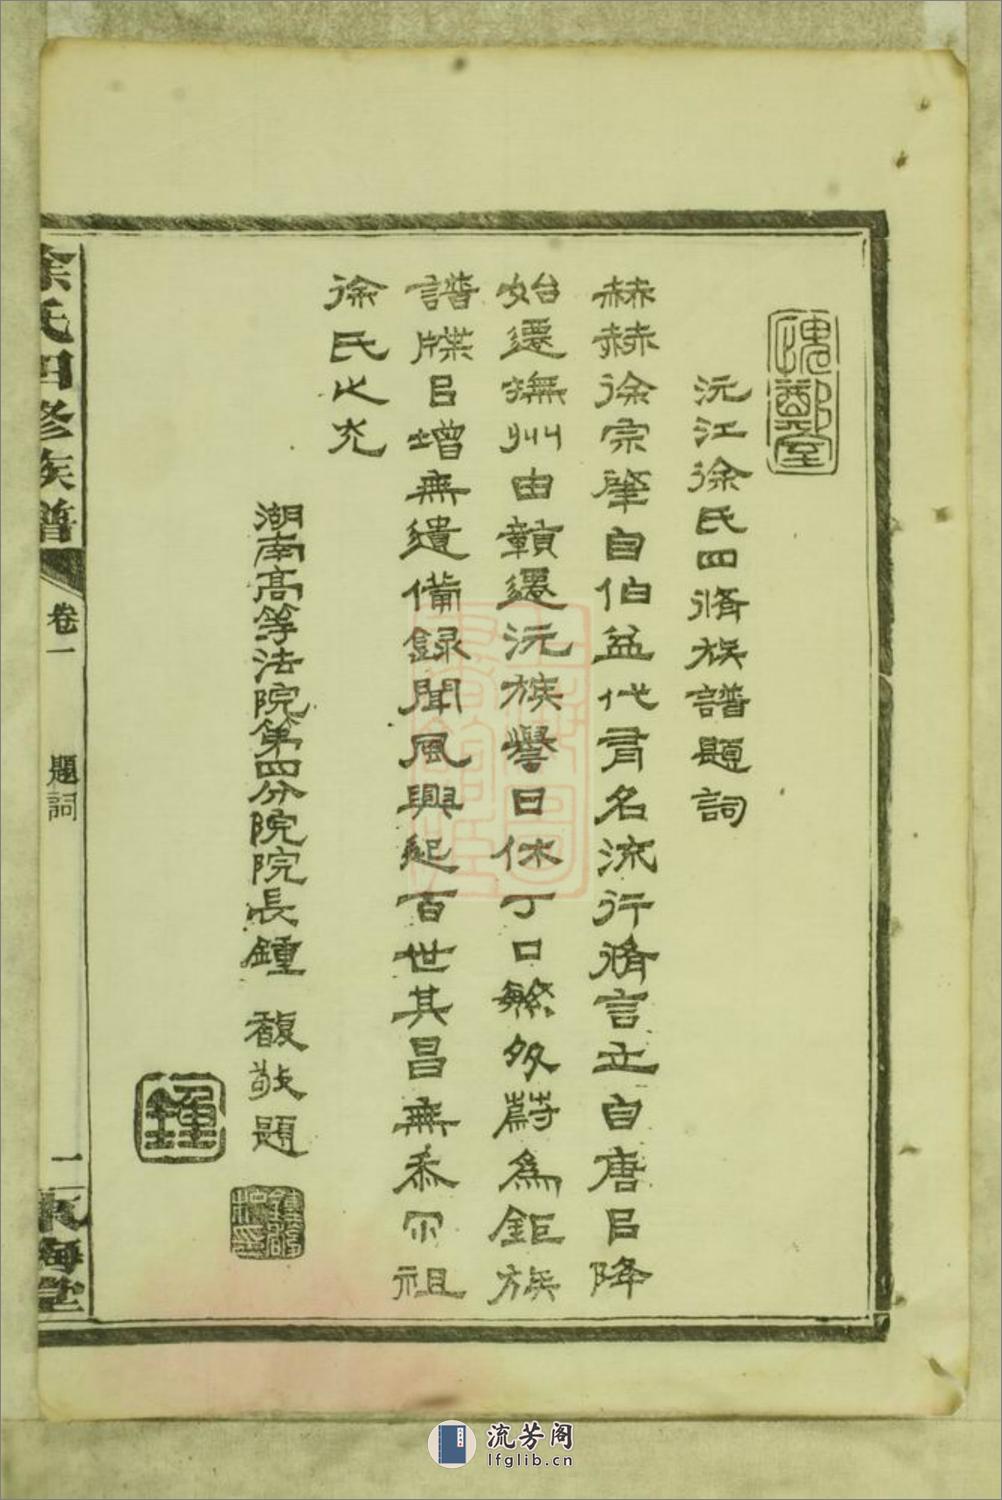 沅江徐氏四脩族譜題詞
赫赫徐宗肇自伯益代有名流行脩言立自唐㠯降
始遷撫州由贛遷沅族譽日休丁口繁多蔚為鉅族
譜牒㠯增無遺備録聞風興起百世其昌無忝尔祖
徐氏之光
湖南高等法院第四分院院長鍾 馥敬題
鍾
徐氏四修族譜
卷一
題詞
一
東海堂
流芳阁
lfglib.cn